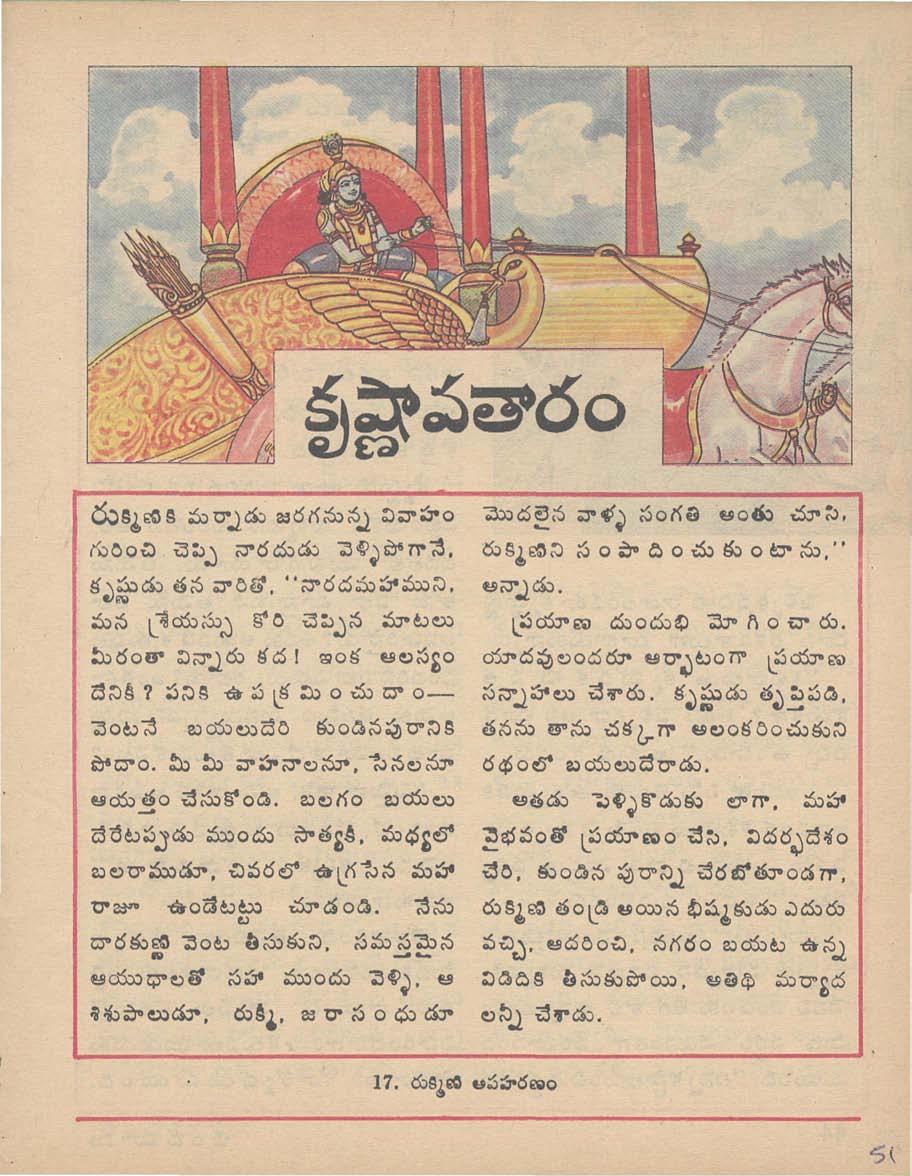 కృష్ణావతారం
రుక్మిణికి మర్నాడు జరగనున్న వివాహం
గురించి చెప్పి నారదుడు వెళ్ళిపోగానే,
కృష్ణుడు తన వారితో, ''నారదమహాముని,
మన శ్రేయస్సు కోరి చెప్పిన మాటలు
మీరంతా విన్నారు కద! ఇంక ఆలస్యం
దేనికీ? పనికి ఉపక్రమించుదాం—
వెంటనే బయలుదేరి కుండినపురానికి
పోదాం. మీ మీ వాహనాలనూ, సేనలనూ
ఆయత్తం చేసుకోండి. బలగం బయలు
దేరేటప్పుడు ముందు సాత్యకీ, మధ్యలో
బలరాముడూ, చివరలో ఉగ్రసేన మహా
రాజూ ఉండేటట్టు చూడండి. నేను
దారకుణ్ణి వెంట తీసుకుని, సమస్తమైన
ఆయుధాలతో సహా ముందు వెళ్ళి, ఆ
శిశుపాలుడూ, రుక్మీ, జరాసంధుడూ
మొదలైన వాళ్ళ సంగతి అంతు చూసి,
రుక్మిణిని సంపాదించుకుంటాను,''
అన్నాడు.
ప్రయాణ దుందుభి మోగించారు.
యాదవులందరూ ఆర్భాటంగా ప్రయాణ
సన్నాహాలు చేశారు. కృష్ణుడు తృప్తిపడి,
తనను తాను చక్కగా అలంకరించుకుని
రథంలో బయలుదేరాడు.
అతడు పెళ్ళికొడుకు లాగా, మహా
వైభవంతో ప్రయాణం చేసి, విదర్భదేశం
చేరి, కుండిన పురాన్ని చేరబోతూండగా,
రుక్మిణి తండ్రి అయిన భీష్మకుడు ఎదురు
వచ్చి, ఆదరించి, నగరం బయట ఉన్న
విడిదికి తీసుకుపోయి, అతిథి మర్యాద
లన్నీ చేశాడు.
17. రుక్మిణి అపహరణం
51